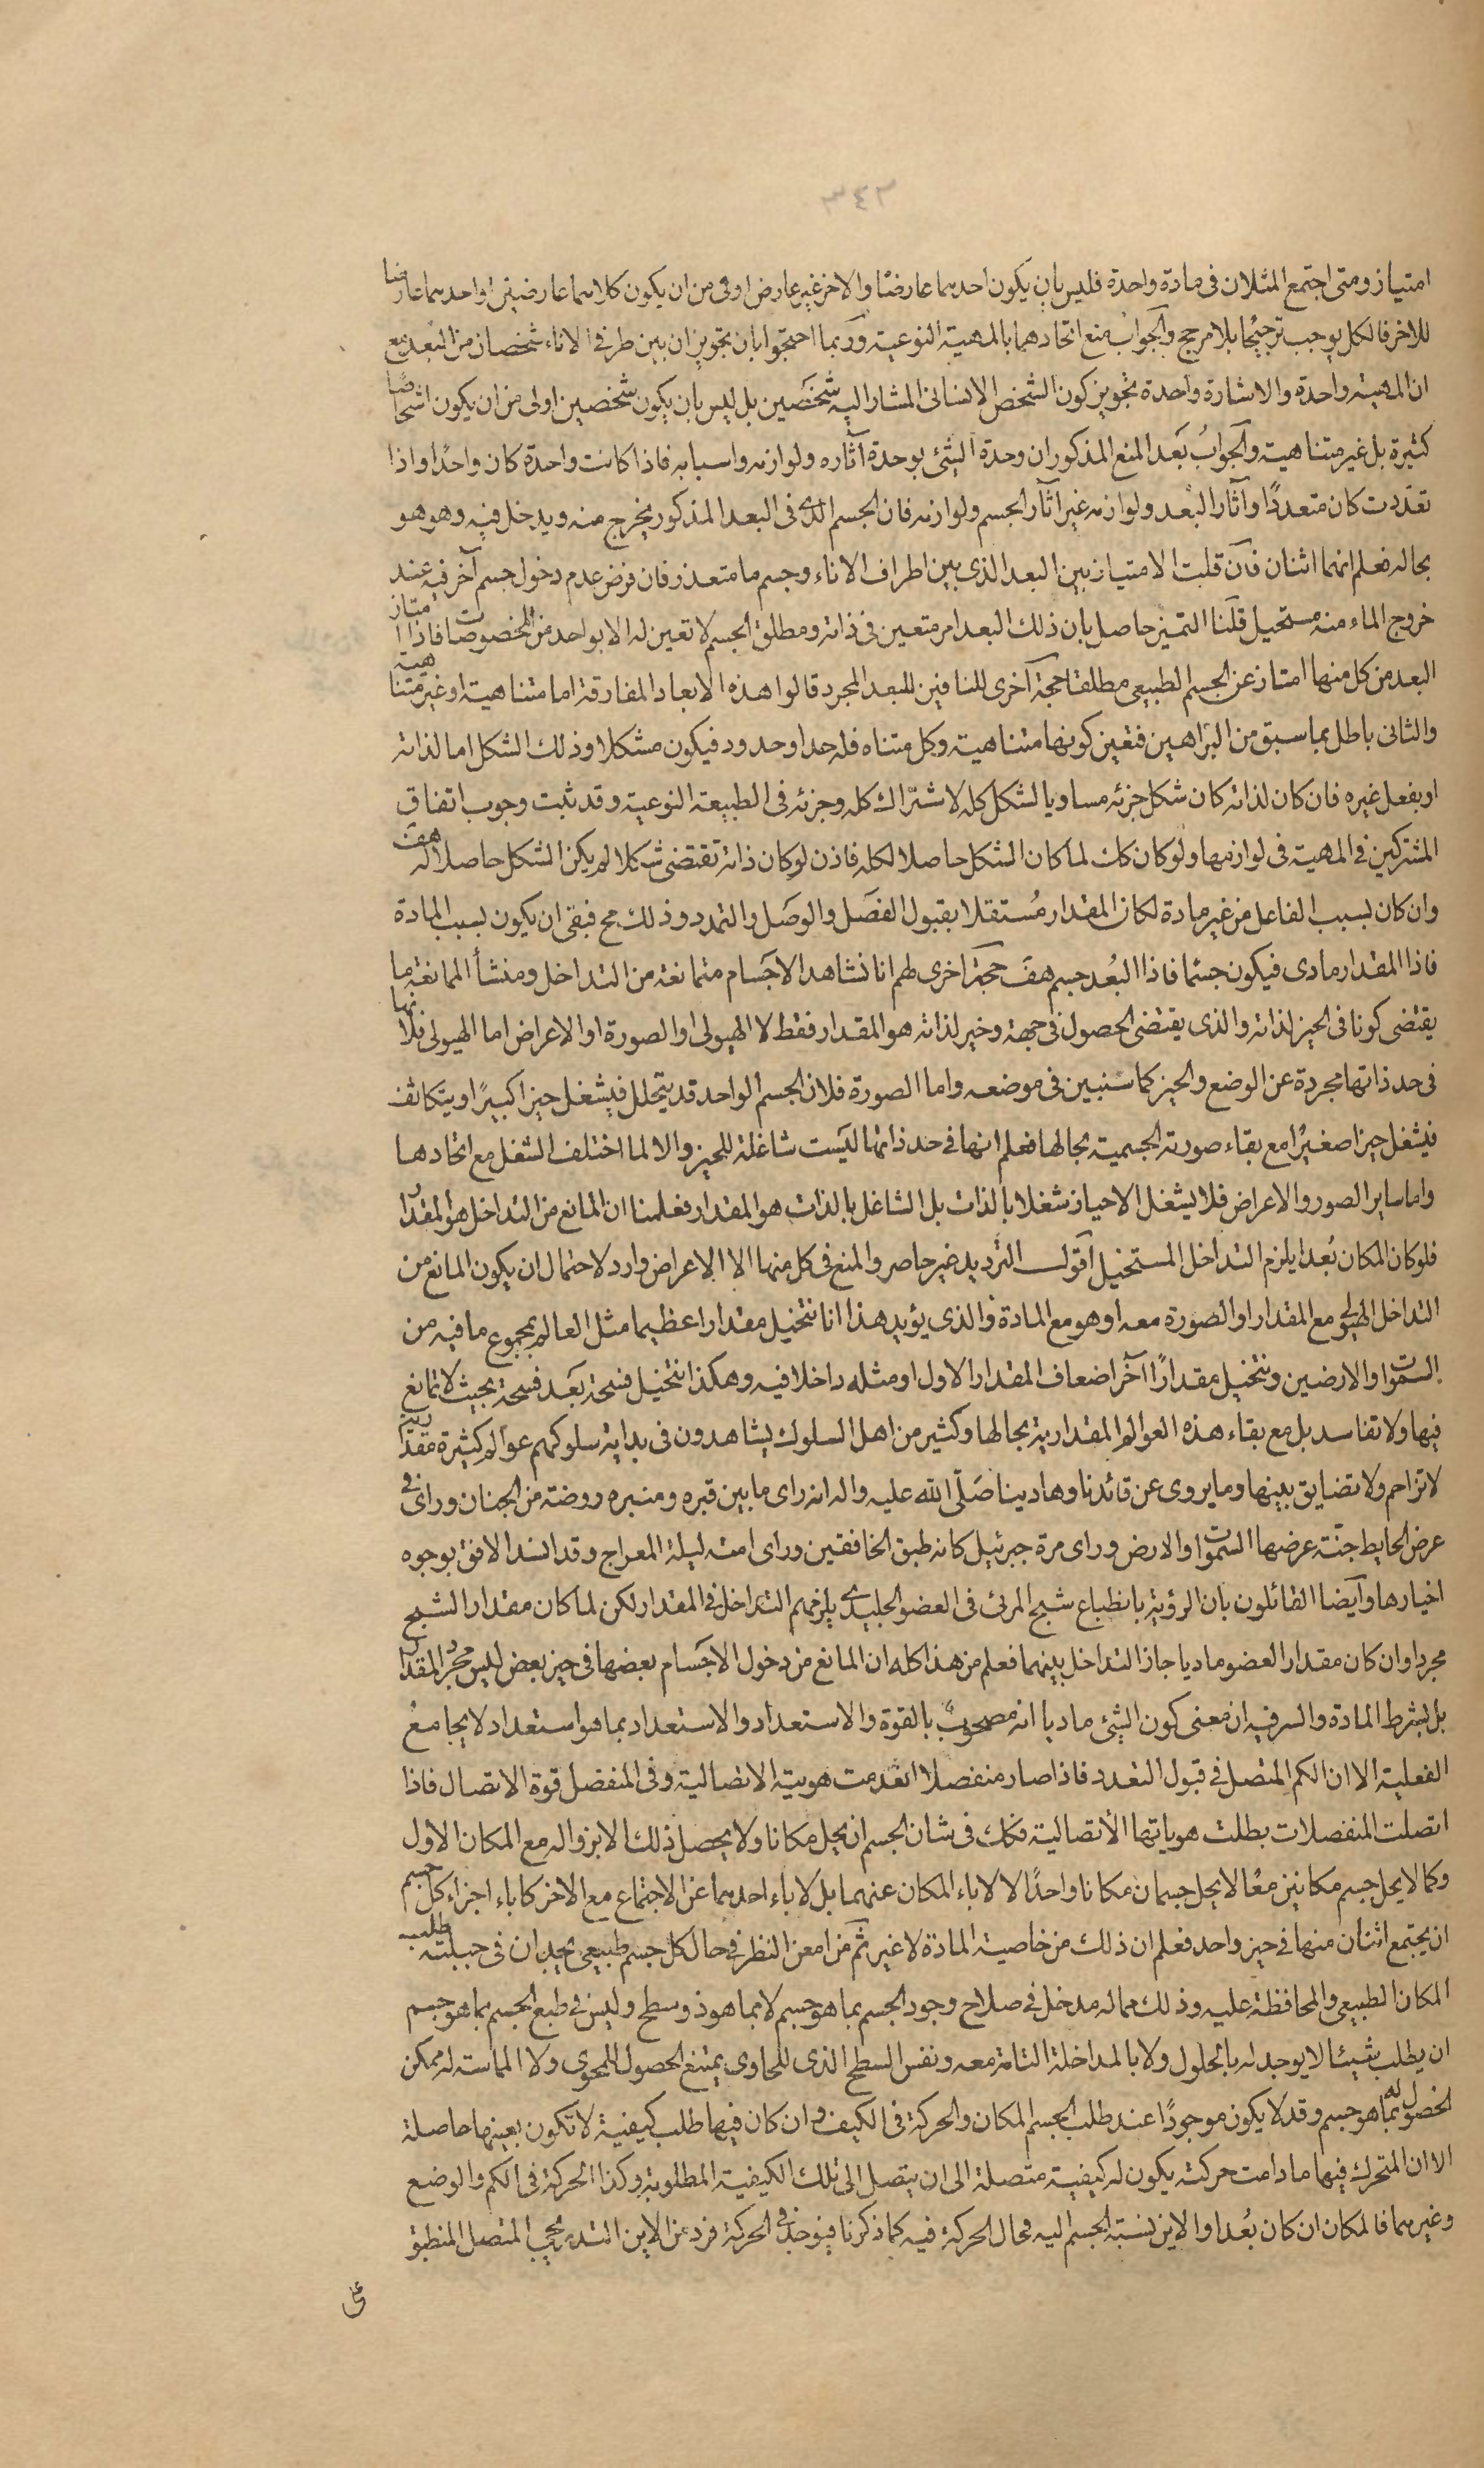 ٣٤٢
امتياز ومتى اجتمع المثلان فى مادة واحدة فليس بان يكون احدهما عارضا والاخر غير عارض اولى من ان يكون كلاهما عارضين او احدهما عارضا
للاخر فالكل يوجب ترجيحا بلا مرجح والجواب منع اتحادهما بالمهية النوعية وربما احتجوا بان تجويز ان بين طرفى الاناء شخصان من البعد مع
ان المهية واحدة والاشارة واحدة تجويز كون الشخص الانسانى المشار اليه شخصين بل ليس بان يكون شخصين اولى من ان يكون اشخاصا
كثيرة بل غير متناهية والجواب بعد المنع المذكور ان وحدة الشئ بوحدة آثاره ولوازمه واسبابه فاذا كانت واحدة كان واحدا واذا
تعددت كان متعددا وآثار البعد ولوازمه غير آثار الجسم ولوازمه فان الجسم الذى فى البعد المذكور يخرج منه ويدخل فيه وهو هو
بحاله فعلم انهما اثنان فان قلت الامتياز بين البعد الذى بين اطراف الاناء وجسم ما متعذر فان فرض عدم دخول جسم آخر فيه عند
خروج الماء منه مستحيل قلنا التميز حاصل بان ذلك البعد امر متعين فى ذاته ومطلق الجسم لا تعين له الا بواحد من المخصوصات فاذا امتاز
البعد من كل منها امتاز عن الجسم الطبيعى مطلقا حجة آخرى للنافين للبعد المجرد قالوا هذه الابعاد المفارقة اما متناهية او غير متناهية
والثانى باطل بما سبق من البراهين فتعين كونها متناهية وكل متناه فله حد او حدود فيكون مشكلا وذلك الشكل اما لذاته
او بفعل غيره فان كان لذاته كان شكل جزئه مساويا لشكل كله لاشتراك كله وجزئه فى الطبيعة النوعية وقد ثبت وجوب اتفاق
المشتركين فى المهية فى لوازمها ولو كان كك لما كان الشكل حاصلا لكله فاذن لو كان ذاته تقتضى شكلا لم يكن الشكل حاصلا له هف
وان كان بسبب الفاعل من غير مادة لكان المقدار مستقلا بقبول الفصل والوصل والتمدد وذلك مح فبقى ان يكون بسبب المادة
فاذا المقدار مادى فيكون جسما فاذا البعد جسم هف حجة اخرى لهم انا نشاهد الاجسام متمانعة من التداخل ومنشأ الممانعة ما
يقتضى كونا فى الحيز لذاته والذى يقتضى الحصول فى جهة وحيز لذاته هو المقدار فقط لا الهيولى او الصورة او الاعراض اما الهيولى فلانها
فى حد ذاتها مجردة عن الوضع والحيز كما سنبين فى موضعه واما الصورة فلان الجسم الواحد قد يتخلل فيشغل حيزا كبيرا ويتكاثف
فيشغل حيزا صغيرا مع بقاء صورته الجسمية بحالها فعلم انها فى حد ذاتها ليست شاغلة للحيز والا لما اختلف الشغل مع اتحادها
واما ساير الصور والاعراض فلا يشغل الاحياز شغلا بالذات بل الشاغل بالذات هو المقدار فعلمنا ان المانع من التداخل هو المقدار
فلو كان المكان بعدا يلزم التداخل المستحيل اقول الترديد غير حاصر والمنع فى كل منها الا الاعراض وارد لاحتمال ان يكون المانع من
التداخل الهيولى مع المقدار او الصورة معه او هو مع المادة والذى يؤيد هذا انا نتخيل مقدارا عظيما مثل العالم بمجموع ما فيه من
السموات والارضين ونتخيل مقدارا آخر اضعاف المقدار الاول او مثله داخلا فيه وهكذا نتخيل فسحة بعد فسحة بحيث لا تمانع
فيها ولا تفاسد بل مع بقاء هذه العوالم المقدارية بحالها وكثير من اهل السلوك يشاهدون فى بداية سلوكهم عوالم كثيرة مقدارية
لا تزاحم ولا تضايق بينها وما يروى عن قائدنا وهادينا صلى الله عليه واله انه راى ما بين قبره ومنبره روضة من الجنان وراى فى
عرض الحايط جنة عرضها السموات والارض وراى مرة جبرئيل كانه طبق الخافقين وراى امته ليلة المعراج وقد انسد الافق بوجوه
اخيارها وايضا القائلون بان الرؤية بانطباع شبح المرئى فى العضو الجليدى يلزمهم التداخل فى المقدار لكن لما كان مقدار الشبح
مجردا وان كان مقدار العضو ماديا جاز التداخل بينهما فعلم من هذا كله ان المانع من دخول الاجسام بعضها فى حيز بعض ليس مجرد المقدار
بل بشرط المادة والسر فيه ان معنى كون الشئ ماديا انه مصحوب بالقوة والاستعداد والاستعداد بما هو استعداد لا يجامع
الفعلية الا ان الكم المتصل فى قبول التعدد فاذا صار منفصلا انعدمت هويته الاتصالية وفى المنفصل قوة الاتصال فاذا
اتصلت المنفصلات بطلت هوياتها الاتصالية فكك فى شان الجسم ان يحل مكانا ولا يحصل ذلك الا بزواله مع المكان الاول
وكما لا يحل جسم مكانين معا لا يحل جسمان مكانا واحدا لا لاباء المكان عنهما بل لاباء احدهما عن الاجتماع مع الاخر كاباء اجزاء كل جسم
ان يجتمع اثنان منها فى حيز واحد فعلم ان ذلك من خاصية المادة لا غير ثم من امعن النظر فى حال كل جسم طبيعى يجد ان فى جبلته طلب
المكان الطبيعى والمحافظة عليه وذلك مما له مدخل فى صلاح وجود الجسم بما هو جسم لا بما هو ذو سطح وليس فى طبع الجسم بما هو جسم
ان يطلب شيئا لا يوجد له بالحلول ولا بالمداخلة التامة معه ونفس السطح الذى للحاوى يمتنع الحصول للمحوى ولا المماسة له ممكن
الحصول له بما هو جسم وقد لا يكون موجودا عند طلب الجسم المكان والحركة فى الكيف وان كان فيها طلب كيفية لا تكون بعينها حاصلة
الا ان المتحرك فيها ما دامت حركته يكون له كيفية متصلة الى ان يتصل الى تلك الكيفية المطلوبة وكذا الحركة فى الكم والوضع
وغيرهما فالمكان ان كان بعدا والاين نسبة الجسم اليه فحال الحركة فيه كما ذكرنا فيوجد فى الحركة فرد من الاين التدريجى المتصل المنطبق